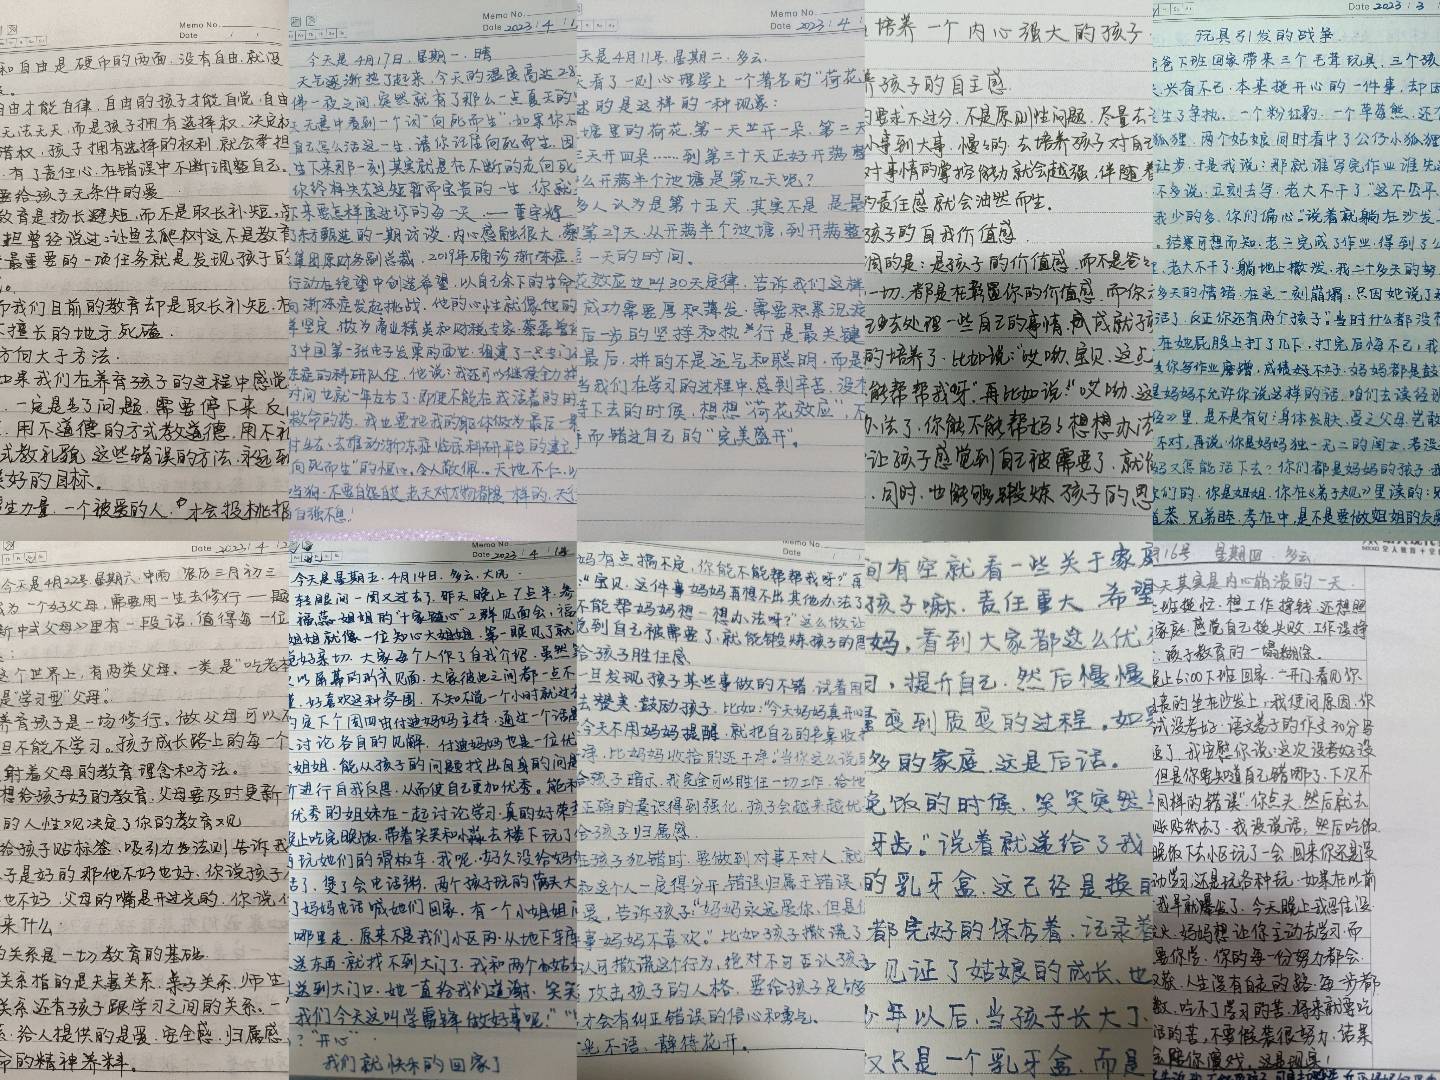 Memo No.
Date
和自由是硬币的两面,没有自由就没
自由才能自律,自由的孩子才能自觉,自由
无法无天,而是孩子拥有选择权,决定权
孩子拥有选择的权利,就会承担
有了责任心,在错误中不断调整自己。
要给孩子无条件的爱
教育是扬长避短,而不是取长补短,
坦曾经说过:让鱼去爬树这不是教育
最重要的一项任务就是发现孩子的
而我们目前的教育却是取长补短,
不擅长的地方死磕
方向大于方法.
如果我们在养育孩子的过程中感觉
一定是出了问题,需要停下来反
用不道德的方式教道德,用不礼
式教礼貌,这些错误的方法,永远到
美好的目标。
生力量,一个被爱的人,才会投桃报
Memo No.
Date 2023 / 4 / 1
今天是4月17日,星期一,晴
天气逐渐热了起来,今天的温度高达28
佛一夜之间,突然就有了那么一点夏天的
无意中看到一个词"向死而生",如果你不
自己怎么活这一生,请你记得向死而生,因
生下来那一刻其实就是在不断的走向死
你终将失去这短暂而宝贵的一生,你就
未来要怎样度过你的每一天 — 董宇辉
东方甄选的一期访谈,内心感触很大,蔡
集团原财务副总裁,2019年确诊渐冻症
行动在绝望中创造希望,以自己余下的生命
向渐冻症发起挑战,他的心性就像他的
了中国第一张电子发票的面世,组建了一支专门
冻症的科研队伍,他说:我还可以继续全力
时间也就一年左右了,即便不能在我活着的时
救命的药,我也要把我的躯体做为最后一
向死而生"的恒心,令人敬佩。天地不仁,以
自强不息!
Memo No.
Date 2023 / 4 /
天是4月11号,星期二,多云.
天看了一则心理学上一个著名的"荷花
述的是这样的一种现象:
塘里的荷花,第一天开一朵,第二天
三天开四朵……到第三十天正好开满整
么开满半个池塘是第几天呢?
多人认为是第十五天,其实不是,是
第29天,从开满半个池塘,到开满整
一天的时间。
花效应也叫30天定律,告诉我们这样
成功需要厚积薄发,需要积累沉淀
后一步的坚持和执行是最关键
最后,拼的不是运气和聪明,而是
当我们在学习的过程中,感到辛苦,没
下去的时候,想想"荷花效应",不
而错过自己的"完美盛开"。
培养一个内心强大的孩子
养孩子的自主感
的要求不过分,不是原则性问题,尽量去
小事到大事,慢慢的,去培养孩子对自己
对事情的掌控能力就会越强,伴随着
的责任感就会油然而生。
孩子的自我价值感
调的是:是孩子的价值感,而不是爸
一切,都是在彰显你的价值感,而你
去处理一些自己的事情,就成就了孩
的培养了,比如说:"哎呦,宝贝,这点
能帮帮我呀",再比如说:"哎呦,这
办法了,你能不能帮妈妈想想办法
让孩子感觉到自己被需要了,就
同时,也能够锻炼孩子的思
Date 2023 / 3
玩具引发的战争
爸爸下班回家带来三个毛茸玩具,三个孩
兴奋不已,本来挺开心的一件事,却因
生了争执,一个粉红豹,一个草莓熊,还
狐狸,两个姑娘同时看中了公仔小狐狸
让步,于是我说:那就谁写完作业谁先
不多说,立刻去写,老大不干了"这不公平
我少的多,你们偏心"说着就躺在沙发上
结果可想而知,老二完成了作业,得到了公
老大不干了,躺地上撒泼,我二十多天的努
多天的情绪,在这一刻崩塌,只因她说了
活了,反正你还有两个孩子"当时什么都没
在她屁股上打了几下,打完后悔不已,我
你写作业磨蹭,成绩好不好,妈妈都是鼓
是妈妈不允许你说这样的话,咱们去读经
经》里,是不是有句:身体发肤,受之父母
不对,再说,你是妈妈独一无二的闺女,若没
妈又怎能活下去?你们都是妈妈的孩子,我
们的,你是姐姐,你在《弟子规》里读的:兄
道恭,兄弟睦,孝在中,是不是要做姐姐的友
Date 2023 / 4 / 2
今天是4月22号,星期六,中雨 农历三月初三
为一个好父母,需要用一生去修行
新中式父母》里有一段话,值得每一位
这个世界上,有两类父母,一类是"吃老本
是"学习型"父母".
养育孩子是一场修行。做父母可以
但不能不学习。孩子成长路上的每一个
射着父母的教育理念和方法。
想给孩子好的教育,父母要及时更新
的人性观决定了你的教育观
给孩子贴标签,吸引力法则告诉我
子是好的,那他不好也好,你说孩子
也不好,父母的嘴是开过光的,你说什
来什么.
的关系是一切教育的基础.
关系指的是夫妻关系,亲子关系,师生
关系还有孩子跟学习之间的关系.一
系,给人提供的是爱,安全感,归属感
命的精神养料。
Memo No.
Date 2023 / 4 / 14
今天是星期五,4月14日,多云,大风.
转眼间一周又过去了,昨天晚上7点半,参
福蕊姐姐的"十家链心"2群见面会,福
姐姐就像一位知心大姐姐,第一眼见了就
觉好亲切.大家每个人作了自我介绍,虽然
以屏幕的形式见面,大家彼此之间都一点不
好喜欢这种氛围,不知不觉一个小时就过
约定下个周四由付迪妈妈主持,通过一个话题
讨论各自的见解,付迪妈妈也是一位优
姐姐,能从孩子的问题找出自身的问题
进行自我反思,从而使自己更加优秀。能和
优秀的姐妹在一起讨论学习,真的好荣幸
晚上吃完晚饭,带着笑笑和小蕊去楼下玩了
玩她们的滑板车,我呢,好久没给妈
话了,煲了会电话粥,两个孩子玩的满头大
了妈妈电话喊她们回家,有一个小姐姐问
哪里走,原来不是我们小区的,从地下车库
送东西,就找不到大门了,我和两个姑娘
送到大门口,她一直给我们道谢.笑笑
我们今天这叫学雷锋做好事呢!"
?"开心"
我们就快乐的回家了
妈有点搞不定,你能不能帮帮我呀?"再
:"宝贝,这件事妈妈再想不出其他办法了
不能帮妈妈想一想办法呀?"这么做让
觉到自己被需要了,就能锻炼孩子的思
给孩子胜任感
一旦发现孩子某些事做的不错,试着用
去赞美,鼓励孩子,比如:"今天妈妈真开心
今天不用妈妈提醒,就把自己的书桌收
净,比妈妈收拾的还干净:"当你这么说
给孩子暗示,我完全可以胜任一切工作,给他
正确的意识得到强化,孩子会越来越优
给孩子归属感
在孩子犯错时,要做到对事不对人,就
和这个人一定得分开,错误归属于错误
爱,告诉孩子:"妈妈永远爱你,但是你
事妈妈不喜欢。"比如孩子撒谎了
认可撒谎这个行为,绝对不可否认孩子
攻击孩子的人格,要给孩子足够
才会有纠正错误的信心和勇气。
光不语,静待花开。
间有空就看一些关于家庭
孩子嘛,责任重大 希望
妈,看到大家都这么优
习,提升自己,然后慢慢
量变到质变的过程。如果
多的家庭,这是后话。
晚饭的时候,笑笑突然
牙齿:"说着就递给了我
的乳牙盒,这已经是换的
都完好的保存着,记录着
见证了姑娘的成长,也
少年以后,当孩子长大了
仅只是一个乳牙盒,而是
月16号 星期四 多云
天其实是内心崩溃的一天,
上班挺忙,想工作挣钱,还想照
家庭,感觉自己挺失败,工作没挣
孩子教育的一塌糊涂.
晚上6:00下班回家,一开门看见你
丧的坐在沙发上,我便问原因,你
试没考好,语文卷子的作文30分写
了,我安慰你说,这次没考好没
但是你要知道自己错哪了,下次不
同样的错误"你点头,然后就去
账贴纸去了,我没说话,然后吃饭
晚饭下去小区玩了一会,回来你还是没
动学习,还是玩各种玩,如果在以前
我早就爆发了,今天晚上我忍住没
火.妈妈想让你主动去学习,而
要你学,你的每一份努力都会
人生没有白走的路,每一步都
数,吃不了学习的苦,将来就要吃
活的苦,不要假装很努力,结果
会陪你演戏,这是现实!